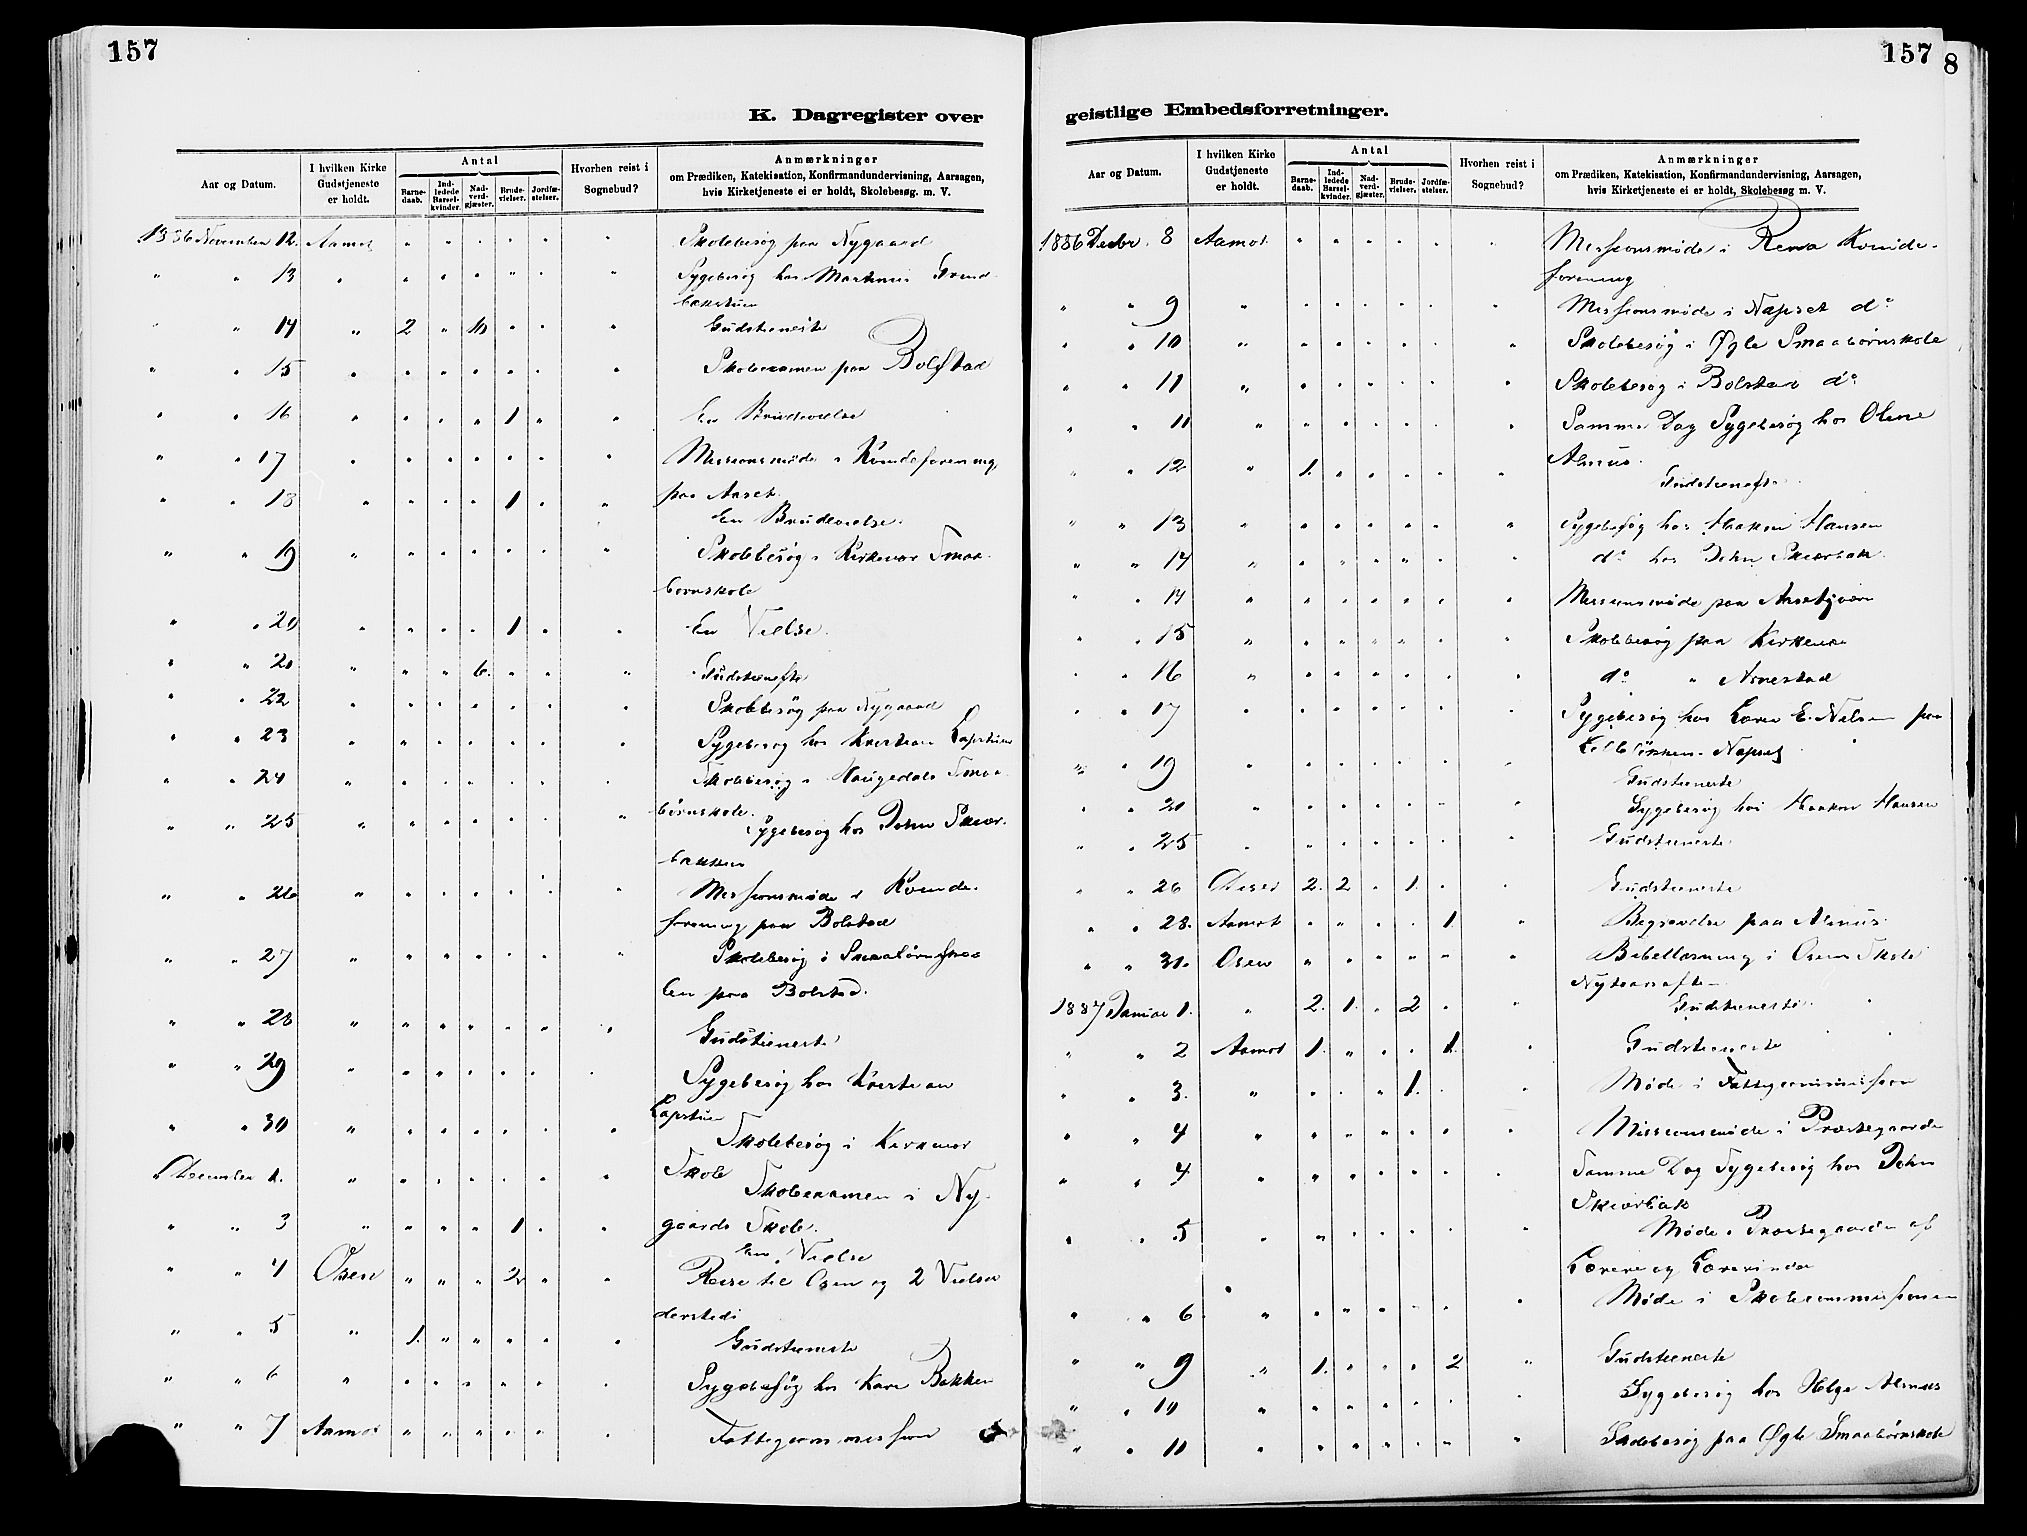 157
K. Dagregister over
Aar og Datum. I hvilken Kirke Gudstjeneste er holdt. Antal Barnedaab. Indledede Barselkvinder. Nadverdgjæster. Brudevielser. Jordfæstelser. Hvorhen reist i Sognebud? Anmærkninger om Prædiken, Katekisation, Konfirmandundervisning, Aarsagen, hvis Kirketjeneste ei er holdt, Skolebesøg. m. V.
1886 November 12. Aamot " " " " " " Skolebesøg paa Nygaard
" " 13 " " " " " " " Sygebesøg hos Martinus
bakstuen
" " 14 " 2 " 10 " " " Gudstieneste
" " 15 " " " " " " " Skoleexamen paa Bolstad
" " 16 " " " " 1 " " En Brudevielse
" " 17 " " " " " " " Missionsmøde i Kvindeforening
paa Aaset.
" " 18 " " " " 1 " " En Brudevielse.
" " 19 " " " " " " " Skolebesøg i Kirkevar Smaa-
børnskole
" " 20 " " " " 1 " " En Vielse.
" " 20 " " " 6. " " " Gudstieneste
" " 22 " " " " " " " Skolebesøg paa Nygaard
" " 23 " " " " " " " Sygebesøg hos Kristian Lapstuen
" " 24 " " " " " " " Skolebesøg i Haugedals Smaa-
børnskole.
" " 25 " " " " " " " Sygebesøg hos John Skiær-
bakken
" " 26 " " " " " " " Missionsmøde i Kvinde-
forening paa Bolstad
" " 27 " " " " " " " Skolebesøg i Smaabørnsko-
len paa Bolstad.
" " 28 " " " " " " " Gudstieneste
" " 29 " " " " " " " Sygebesøg hos Kristian
Lapstuen
" " 30 " " " " " " " Skolebesøg i Kirkevar
Skole
" December 1. " " " " " " " Skoleexamen i Ny-
gaards Skole.
" " 3 " " " " 1 " " En Vielse
" " 4 Osen " " " 2 " " Reise til Osen og 2 Vielser
dersteds
" " 5 " 1. " " " " " Gudstieneste
" " 6 " " " " " " " Sygebesøg hos Kari Bakken
" " 7 Aamot " " " " " " Fattigcommission
157
8
geistlige Embedsforretninger.
Aar og Datum. I hvilken Kirke Gudstjeneste er holdt. Antal Barnedaab. Indledede Barselkvinder. Nadverdgjæster. Brudevielser. Jordfæstelser. Hvorhen reist i Sognebud? Anmærkninger om Prædiken, Katekisation, Konfirmandundervisning, Aarsagen, hvis Kirketjeneste ei er holdt, Skolebesøg m. V.
1886 Decbr. 8 Aamot. " " " " " " Missionsmøde i Rena Kvinde-
forening
" " 9 " " " " " " " Missionsmøde i Napset do
" " 10 " " " " " " " Skolebesøg i Øgle Smaabørnskole
" " 11 " " " " " " " Skolebesøg i Bolstad do
" " 11 " " " " " " " Samme Dag Sygebesøg hos Olene
Alnus.
" " 12 " 1. " " " " " Gudstieneste.
" " 13 " " " " " " " Sygebesøg hos Haakon Hansen
" " 14 " " " " " " " do hos John Skiærbak.
" " 14 " " " " " " " Missionsmøde paa
" " 15 " " " " " " " Skolebesøg paa Kirkevar
" " 16 " " " " " " " do " Arnestad
" " 17 " " " " " " " Sygebesøg hos E. Nilsen paa
Napset
" " 19 " " " " " " " Gudstieneste
" " 20 " " " " " " " Sygebesøg hos Haakon Hansen
" " 25 " " " " " " " Gudstieneste
" " 26 Osen 2. 2 " 1. " " Gudstieneste
" " 28. Aamot " " " " 1 " Begravelse paa Alnus.
" " 31. Osen " " " " " " Bibellæsning i Osens Skole
Nytaarsaften
1887 Januar 1. " 2. 1. " 2 " " Gudstieneste
" " 2 Aamot 1. " " " 1. " Gudstieneste
" " 3. " " " " 1. " " Møde i Fattigcommission
" " 4 " " " " " " " Missionsmøde i Præstegaarden
" " 4 " " " " " " " Samme Dag Sygebesøg hos John
Skiærbak
" " 5 " " " " " " " Møde i Præstegaarden af
Lærere og Lærerinder
" " 6 " " " " " " " Møde i Skolecommissionen
" " 9 " 1. " " " 2 " Gudstieneste
" " 10 " " " " " " " Sygebesøg hos Helge Alnus
" " 11 " " " " " " " Skolebesøg paa Øgle Smaabørnskole